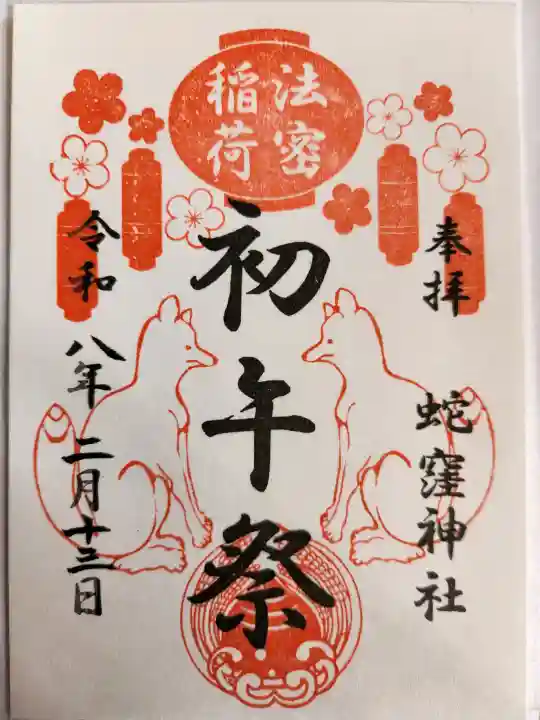 奉拝
蛇窪神社
法密
稲荷
初午祭
令和
八年二月十三日